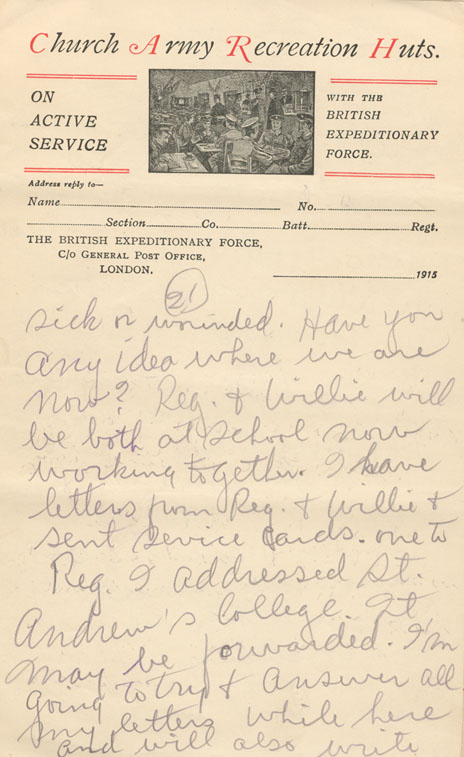 Church Army Recreation Huts.
ON ACTIVE SERVICE
WITH THE BRITISH EXPEDITIONARY FORCE.
Address reply to—
Name No.
Section Co. Batt. Regt.
THE BRITISH EXPEDITIONARY FORCE,
C/O GENERAL POST OFFICE,
LONDON.
1915
21
sick or wounded. Have you
any idea where we are
now? Reg. & Willie will
be both at school now
working together. I have
letters from Reg. & Willie &
sent service cards. one to
Reg. I addressed St.
Andrew's College. It
may be forwarded. I'm
going to try & answer all
my letters while here
and will also write